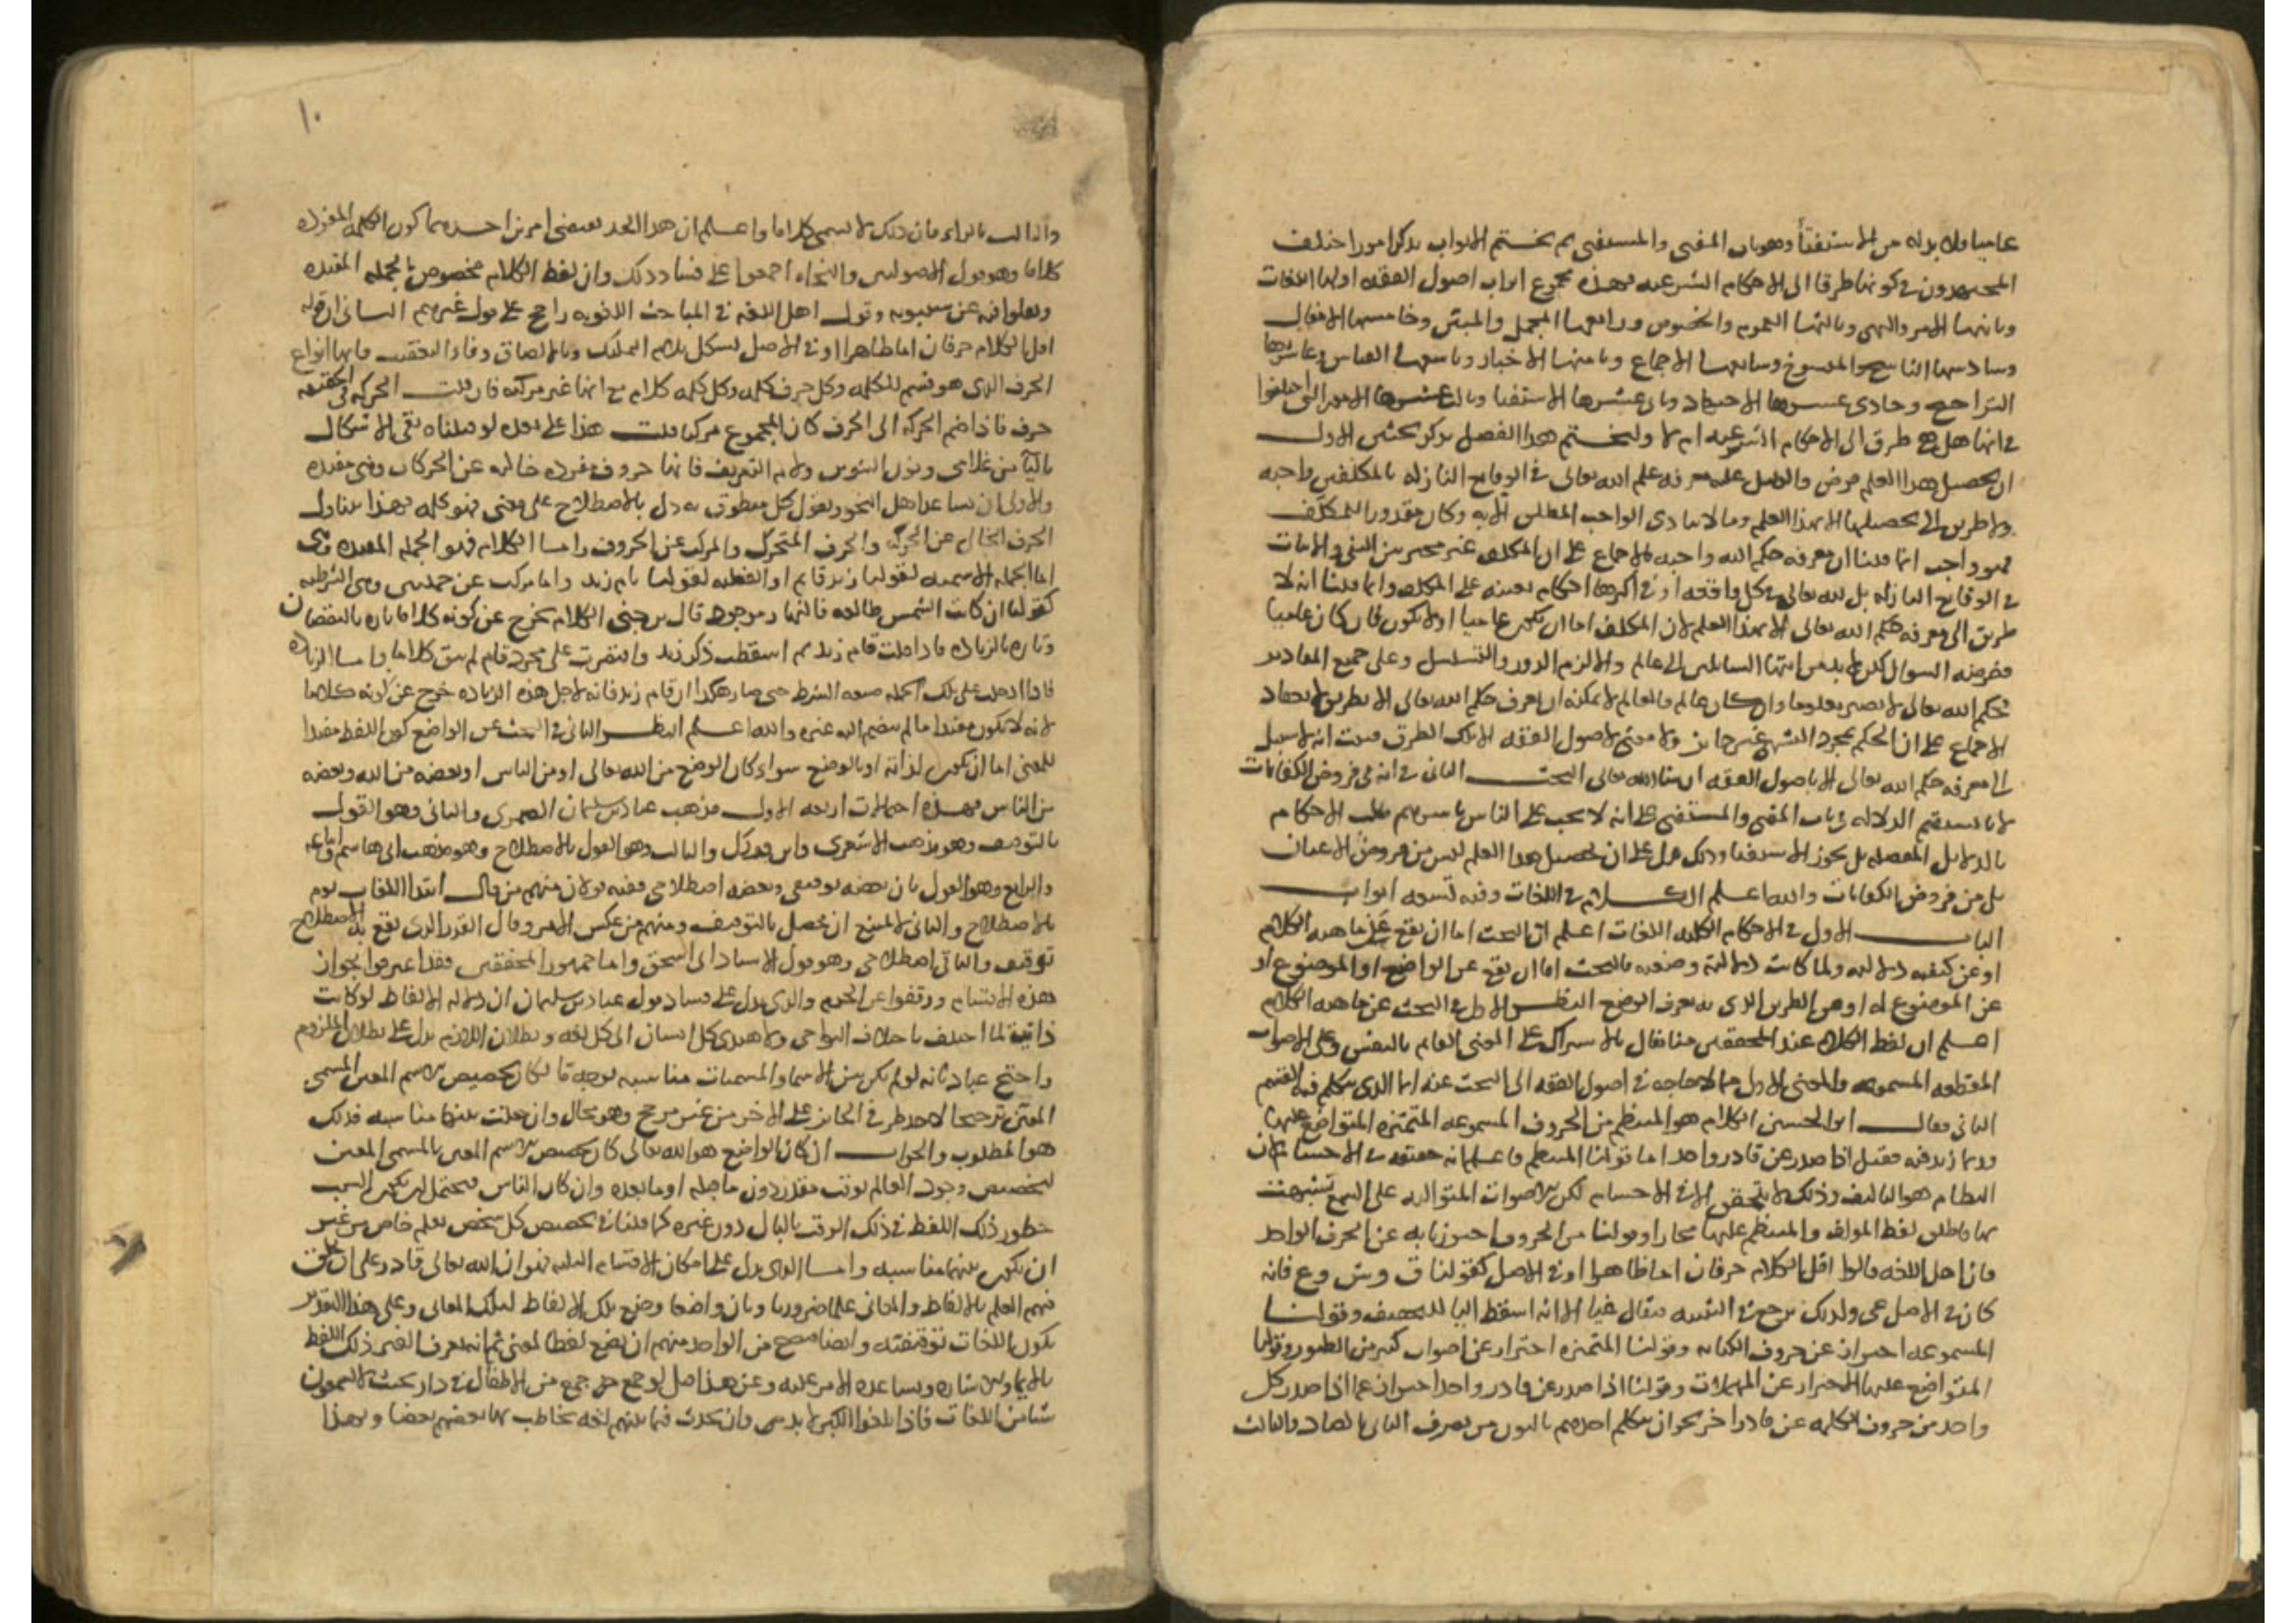 عاميا ولا بد له من الاستفتاء وهو باب المفتي والمستفتي ثم نختم الابواب بذكر امور اختلف
المجتهدون في كونها طرقا الى الاحكام الشرعيه فهذه مجموع ابواب اصول الفقه اولها اللغات
وثانيها الامر والنهي وثالثها العموم والخصوص ورابعها المجمل والمبين وخامسها الافعال
وسادسها الناسخ والمنسوخ وسابعها الاجماع وثامنها الاخبار وتاسعها القياس وعاشرها
التراجيح وحادي عشرها الاجتهاد وثاني عشرها الاستفتا وثالث عشرها الامور التي اختلفوا
في انها هل هي طرق الى الاحكام الشرعيه ام لا ولنختم هذا الفصل بذكر بحثين الاول
ان تحصيل هذا العلم فرض والدليل عليه معرفه حكم الله تعالى في الوقايع النازله بالمكلفين واجبه
ولا طريق الى تحصيلها الا بهذا العلم وما لا يتادى الواجب المطلق الا به وكان مقدورا للمكلف
فهو واجب انما قلنا ان معرفه حكم الله واجبه للاجماع على ان المكلف غير مخير بين النفي والاثبات
في الوقايع النازله بل لله تعالى في كل واقعه او في اكثرها احكام معينه على المكلف وانما قلنا انه لا
طريق الى معرفه حكم الله تعالى الا بهذا العلم لان المكلف اما ان يكون عاميا او لا يكون فان كان عاميا
ففرضه السوال لكن لا بد من انتها السايلين الى عالم والا لزم الدور والتسلسل وعلى جميع التقادير
فحكم الله تعالى لا يصير معلوما وان كان عالما فالعالم لا يمكنه ان يعرف حكم الله تعالى الا بطريق لانعقاد
الاجماع على ان الحكم بمجرد التشهي غير جايز ولا معنى لاصول الفقه الا تلك الطرق فثبت انه لا سبيل
الى معرفه حكم الله تعالى الا باصول الفقه ان شا الله تعالى البحث الثاني في انه من فروض الكفايات
لانا سنقيم الدلاله في باب المفتي والمستفتي على انه لا يجب على الناس باسرهم طلب الاحكام
بالدلايل المفصله بل يجوز الاستفتا وذلك يدل على ان تحصيل هذا العلم ليس من فروض الاعيان
بل من فروض الكفايات والله اعلم الكلام في اللغات وفيه تسعه ابواب
الباب الاول في الاحكام الكليه للغات اعلم ان البحث اما ان يقع عن ماهيه الكلام
او عن كيفيه دلالته ولما كانت دلالته وضعيه فالبحث اما ان يقع عن الواضع او الموضوع او
عن الموضوع له او عن الطريق الذي به يعرف الوضع النظر الاول في البحث عن ماهيه الكلام
اعلم ان لفظ الكلام عند المحققين منا يقال بالاشتراك على المعنى القايم بالنفس وعلى الاصوات
المقطعه المسموعه والمعنى الاول مما لا حاجه في اصول الفقه الى البحث عنه انما الذي نتكلم فيه القسم
الثاني فقال ابو الحسين الكلام هو المنتظم من الحروف المسموعه المتميزه المتواضع عليها
وربما زيد فيه فقيل اذا صدر عن قادر واحد اما قولنا المنتظم فاعلم انه حقيقه في الاجسام لان
النظام هو التاليف وذلك لا يتحقق الا في الاجسام لكن الاصوات المتواليه على السمع تشبهت
بها فاطلق لفظ المولف والمنتظم عليها مجازا وقولنا من الحروف احترزنا به عن الحرف الواحد
فان اهل اللغه قالوا اقل الكلام حرفان اما ظاهرا او في الاصل كقولنا ق وش وع فانه
كان في الاصل عي ولذلك يرجع في التثنيه فيقال عيا الا انه اسقط اليا للتخفيف وقولنا
المسموعه احتراز عن حروف الكتابه وقولنا المتميزه احتراز عن اصوات كثير من الطيور وقولنا
المتواضع عليها احتراز عن المهملات وقولنا اذا صدر عن قادر واحد احتراز عما اذا صدر كل
واحد من حروف الكلمه عن قادر اخر نحو ان يتكلم احدهم بالنون من نصر والثاني بالصاد والثالث
١٠
والثالث بالراء فان ذلك لا يسمى كلاما واعلم ان هذا الحد يقتضي امرين احدهما كون الكلمه المفرده
كلاما وهو قول الاصوليين والنحاه اجمعوا على فساد ذلك وان لفظ الكلام مخصوص بالجمله المفيده
ونقلوا فيه عن سيبويه وقول اهل اللغه في المباحث اللغويه راجح على قول غيرهم الثاني ان قوله
اقل الكلام حرفان اما ظاهرا او في الاصل يشكل بلام التمليك وبا الالصاق وفا التعقيب فانها انواع
الحرف الذي هو قسم للكلمه وكل حرف كلمه وكل كلمه كلام مع انها غير مركبه فان قلت الحركه في الحقيقه
حرف فاذا ضم الحركه الى الحرف كان المجموع مركبا قلت هذا على بعده لو قبلناه بقي الاشكال
باليا من غلامي ونون التنوين ولام التعريف فانها حروف مفرده خاليه عن الحركات وهي مفيده
والاولى ان نساعد اهل النحو ونقول كل منطوق به دل بالاصطلاح على معنى فهو كلمه فهذا يتناول
الحرف الخالي عن الحركه والحرف المتحرك والمركب عن الحروف واما الكلام فهو الجمله المفيده وهي
اما الجمله الاسميه كقولنا زيد قايم او الفعليه كقولنا قام زيد واما مركب عن جملتين وهي الشرطيه
كقولنا ان كانت الشمس طالعه فالنهار موجود قال بن جني الكلام يخرج عن كونه كلاما تاره بالنقصان
وتاره بالزياده فاذا قلت قام زيد ثم اسقطت ذكر زيد واقتصرت على مجرد قام لم يبق كلاما واما الزياده
فاذا ادخلت على تلك الجمله صيغه الشرط حتى صار هكذا ان قام زيد فانه لاجل هذه الزياده خرج عن كونه كلاما
لانه لا يكون مفيدا ما لم ينضم اليه غيره والله اعلم النظر الثاني في البحث عن الواضع كون اللفظ مفيدا
للمعنى اما ان يكون لذاته او بالوضع سواء كان الوضع من الله تعالى او من الناس او بعضه من الله وبعضه
من الناس فهذه احتمالات اربعه الاول مذهب عباد بن سليمان الصيمري والثاني وهو القول
بالتوقيف وهو مذهب الاشعري وابن فورك والثالث وهو القول بالاصطلاح وهو مذهب ابي هاشم واتباعه
والرابع وهو القول بان بعضه توقيفي وبعضه اصطلاحي ففيه قولان منهم من قال ابتدا اللغات يقع
بالاصطلاح والثاني لا يمتنع ان يحصل بالتوقيف ومنهم من عكس الامر وقال القدر الذي يقع به الاصطلاح
توقيف والباقي اصطلاحي وهو قول الاستاذ ابي اسحق واما جمهور المحققين فقد اعترفوا بجواز
هذه الاقسام وتوقفوا عن الجزم والذي يدل على فساد قول عباد بن سليمان ان دلاله الالفاظ لو كانت
ذاتيه لما اختلف باختلاف النواحي ولاهتدى كل انسان الى كل لغه وبطلان اللازم يدل على بطلان الملزوم
واحتج عباد بانه لو لم يكن بين الاسما والمسميات مناسبه بوجه ما لكان تخصيص الاسم المعين للمسمى
المعين ترجيحا لاحد طرفي الجايز على الاخر من غير مرجح وهو محال وان حصلت بينهما مناسبه فذلك
هو المطلوب والجواب ان كان الواضع هو الله تعالى كان تخصيص الاسم المعين بالمسمى المعين
كتخصيص وجود العالم بوقت مقدر دون ما قبله او ما بعده وان كان الناس فيحتمل ان يكون السبب
خطور ذلك اللفظ في ذلك الوقت بالبال دون غيره كما قلنا في تخصيص كل شخص بعلم خاص من غير
ان يكون بينهما مناسبه واما الذي يدل على امكان الاقسام الثلثه فهو ان الله تعالى قادر على ان يخلق
فيهم العلم بالالفاظ والمعاني علما ضروريا وبان واضعا وضع تلك الالفاظ لتلك المعاني وعلى هذا التقدير
تكون اللغات توقيفيه وايضا فيصح من الواحد منهم ان يضع لفظا لمعنى ثم انه يعرف الغير ذلك اللفظ
بالايماء والاشاره ويساعده الاخر عليه وعن هذا قيل لو جمع جمع من الاطفال في دار بحيث لا يسمعون
شيا من اللغات فاذا بلغوا الكبر لا بد من وان يحدث فيما بينهم لغه يخاطب بها بعضهم بعضا وبهذا